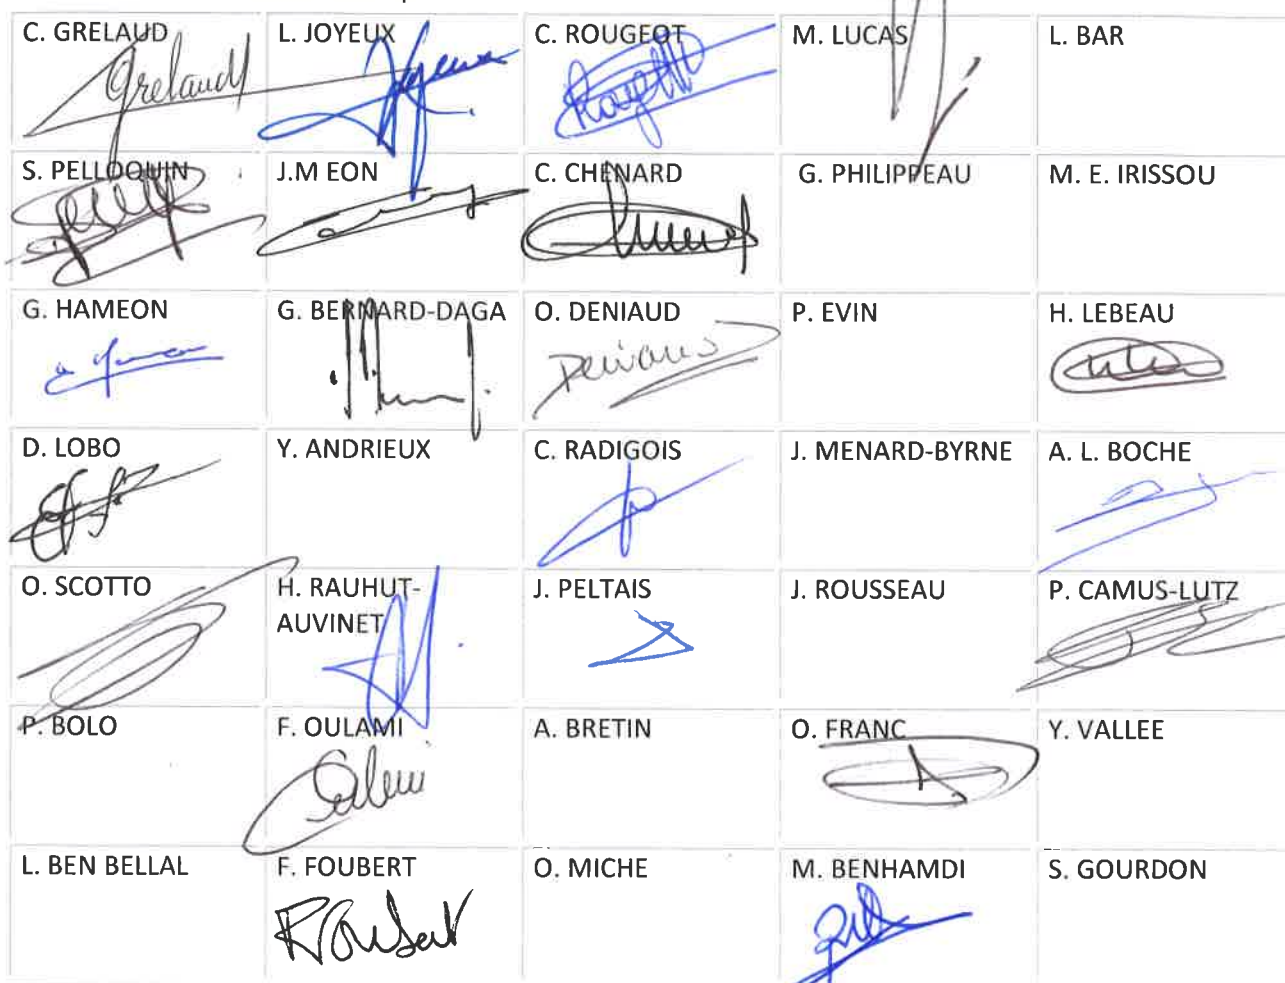 C. GRELAUD
L. JOYEUX
C. ROUGEOT
M. LUCAS
L. BAR
Grelaud
S. PELLOQUIN
J.M EON
C. CHENARD
G. PHILIPPEAU
M. E. IRISSOU
G. HAMEON
G. BERNARD-DAGA
O. DENIAUD
P. EVIN
H. LEBEAU
Deniaud
D. LOBO
Y. ANDRIEUX
C. RADIGOIS
J. MENARD-BYRNE
A. L. BOCHE
O. SCOTTO
H. RAUHUT-
AUVINET
J. PELTAIS
J. ROUSSEAU
P. CAMUS-LUTZ
P. BOLO
F. OULAMI
A. BRETIN
O. FRANC
Y. VALLEE
L. BEN BELLAL
F. FOUBERT
O. MICHE
M. BENHAMDI
S. GOURDON
Foubert